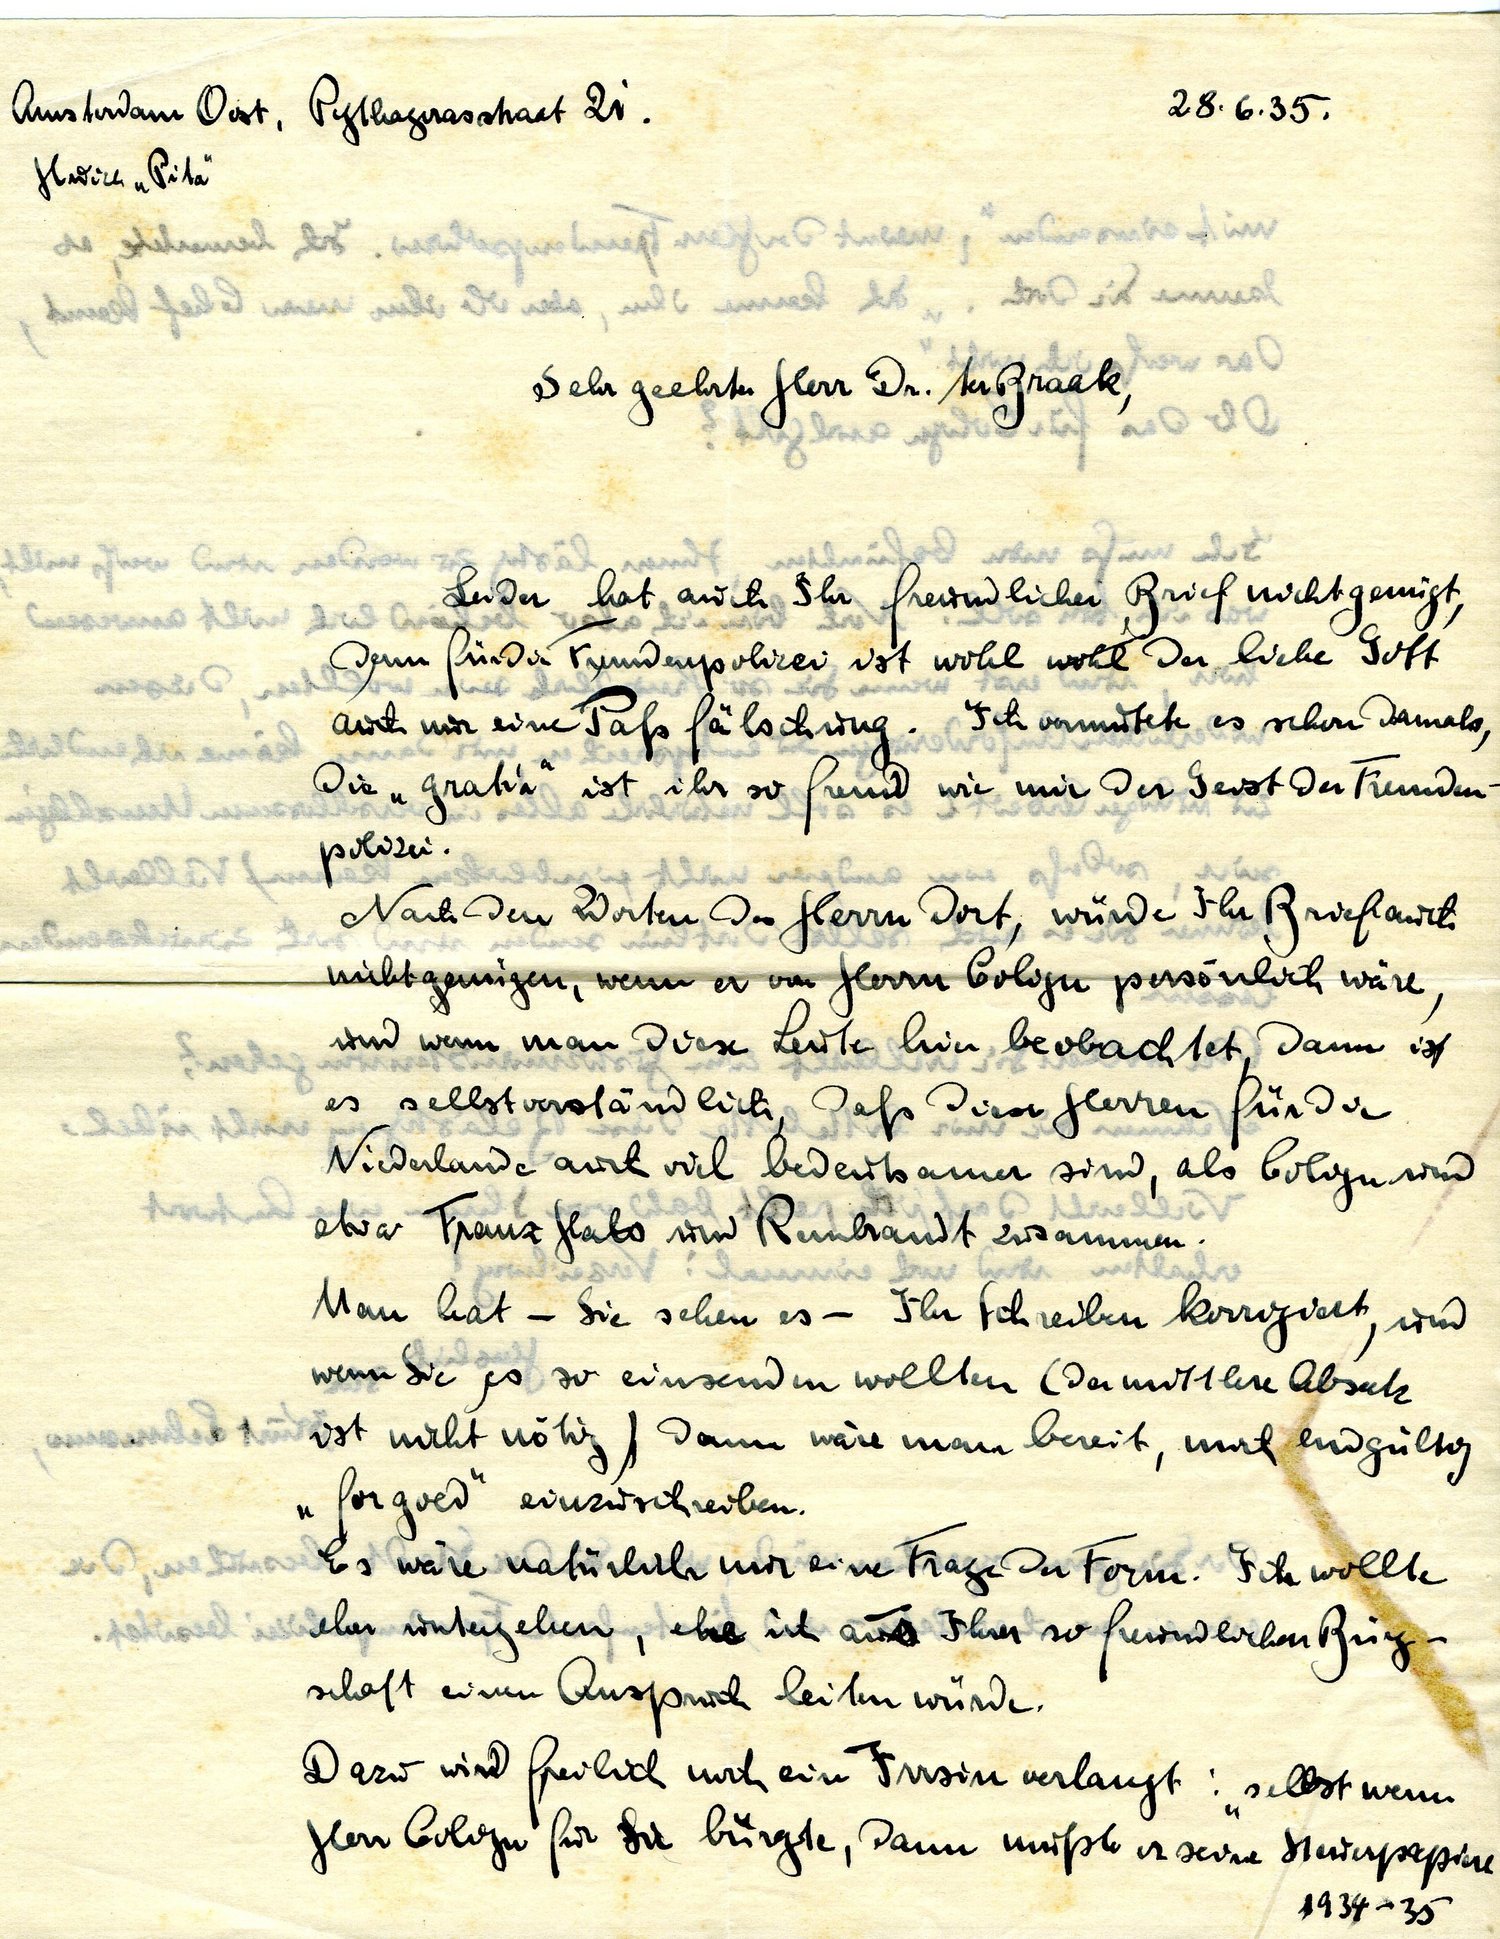 Amsterdam Oost, Pythagorasstraat 21.
28.6.35.
"Pita"
Sehr geehrter Herr Dr. ter Braak,
Leider hat auch Ihr freundlicher Brief nicht genügt,
denn für die Fremdenpolizei ist wohl wohl der liebe Gott
auch nur eine Paßfälschung. Ich vermutete es schon damals,
die „gratia“ ist ihr so fremd wie mir der Geist der Fremden-
polizei.
Nach den Worten des Herrn dort, würde Ihr Brief auch
nicht genügen, wenn er von Herrn Colijn persönlich wäre,
und wenn man diese Leute hier beobachtet, dann ist
es selbstverständlich, daß diese Herren für die
Niederlande auch viel bedeutsamer sind, als Colijn und
etwa Franz Hals und Rembrandt zusammen.
Man hat – Sie sehen es – Ihr Schreiben korrigiert, und
wenn Sie es so einsenden wollten (der mittlere Absatz
ist nicht nötig) dann wäre man bereit, mich endgültig
„for goed“ einzuschreiben.
Es wäre natürlich nur eine Frage der Form. Ich wollte
eher untergehen, ehe ich aus Ihrer so freundlichen Bürg-
schaft einen Anspruch leiten würde.
Dazu wird freilich noch ein Irrsin verlangt: „selbst wenn
Herr Colijn für Sie bürgte, dann müßte er seine Steuerpapiere
1934–35